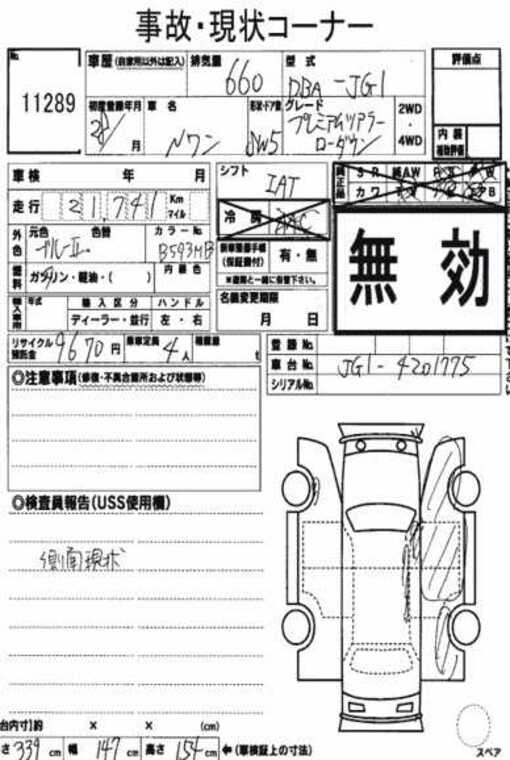 事故・現状コーナー
No. 11289
車歴 (自家用以外は記入)
排気量 660
型式 DBA-JG1
評価点
初度登録年月 28/ 月
車名 Nワン
形状・ドア数 5W5
グレード プレミアムツアラー ローダウン
2WD・4WD
内装補助評価
車検 年 月
シフト IAT
純正品 SR 純AW PS PW
カワ エアB
走行 21,741 Km マイル
冷房 AAC
無効
外色 元色 ブルーII 色替 カラーNo. B593MB
新車整備手帳(保証書付) 有・無
※書類と一緒に御書下さい。
燃料 ガソリン・軽油・( ) 内装色
名義変更期限 月 日
輸入車用 年式 輸入区分 ハンドル
ディーラー・並行 左・右
リサイクル預託金 9670円 乗車定員 4人 積載量 t
登録No.
車台No. JG1-4201775
シリアルNo.
◎注意事項(修復・不具合箇所および状態等)
◎検査員報告(USS使用欄)
側面現状
台内寸〕約 × × (cm)
さ 339 cm 幅 147 cm 高さ 154 cm ←(車検証上の寸法)
スペア